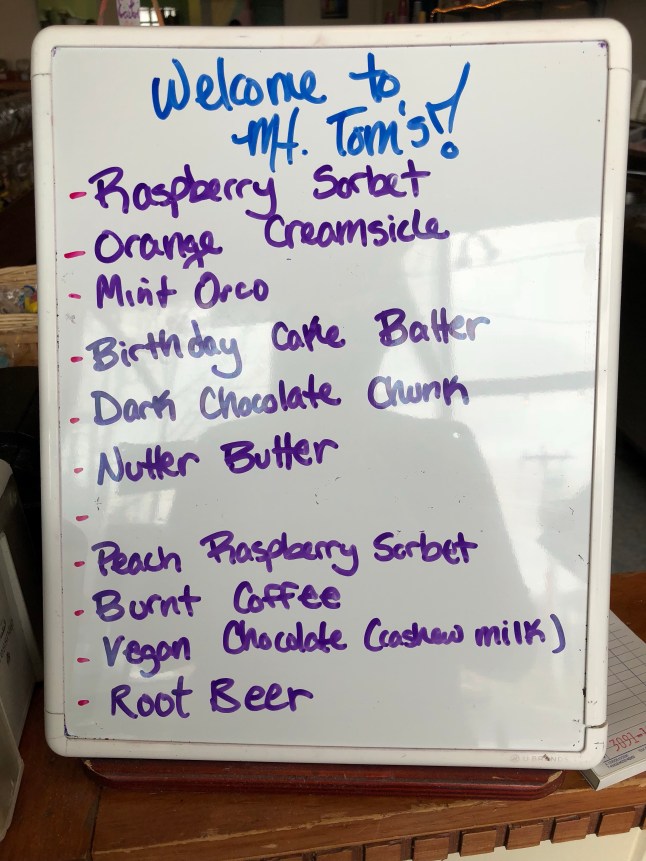 Welcome to
Mt. Tom's!
- Raspberry Sorbet
- Orange Creamsicle
- Mint Oreo
- Birthday Cake Batter
- Dark Chocolate Chunk
- Nutter Butter
-
- Peach Raspberry Sorbet
- Burnt Coffee
- Vegan Chocolate (cashew milk)
- Root Beer
3091-1